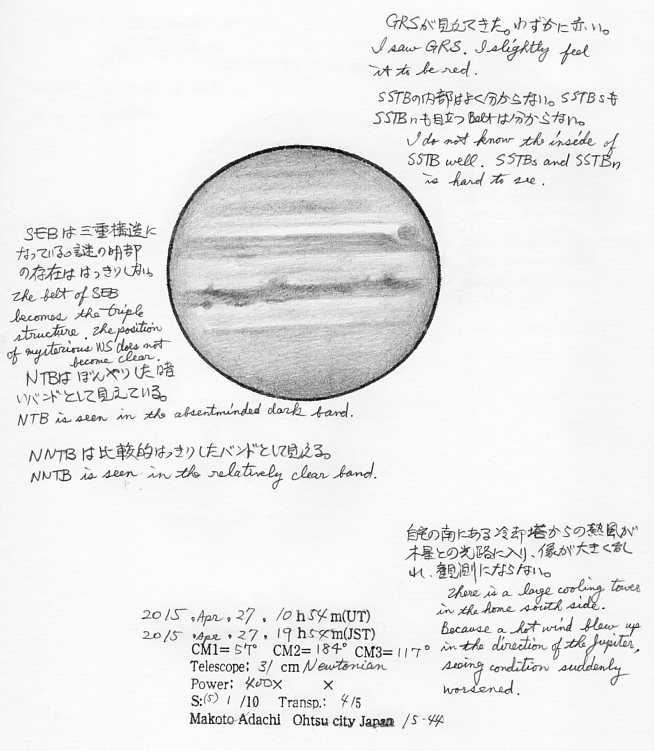 GRSが見えてきた。わずかに赤い。
I saw GRS. I slightly feel
it to be red.
SSTBの内部はよく分からない。SSTBsも
SSTBnも目立つBeltは分からない。
I do not know the inside of
SSTB well. SSTBs and SSTBn
is hard to see.
SEBは三重構造に
なっている。謎の明部
の存在ははっきりしない。
The belt of SEB
becomes the triple
structure. The position
of mysterious WS does not
become clear.
NTBはぼんやりした暗
いバンドとして見えている。
NTB is seen in the absentminded dark band.
NNTBは比較的はっきりしたバンドとして見える。
NNTB is seen in the relatively clear band.
自宅の南にある冷却塔からの熱風が
木星との光路に入り、像が大きく乱
れ、観測にならない。
There is a large cooling tower
in the home south side.
Because a hot wind blew up
in the direction of the Jupiter,
seeing condition suddenly
worsened.
2015 . Apr . 27 . 10 h 54 m(UT)
2015 . Apr . 27 . 19 h 54 m(JST)
CM1= 57° CM2= 184° CM3= 117°
Telescope: 31 cm Newtonian
Power: 400× ×
S:(5) 1 /10 Transp.: 4/5
Makoto Adachi Ohtsu city Japan 15-44